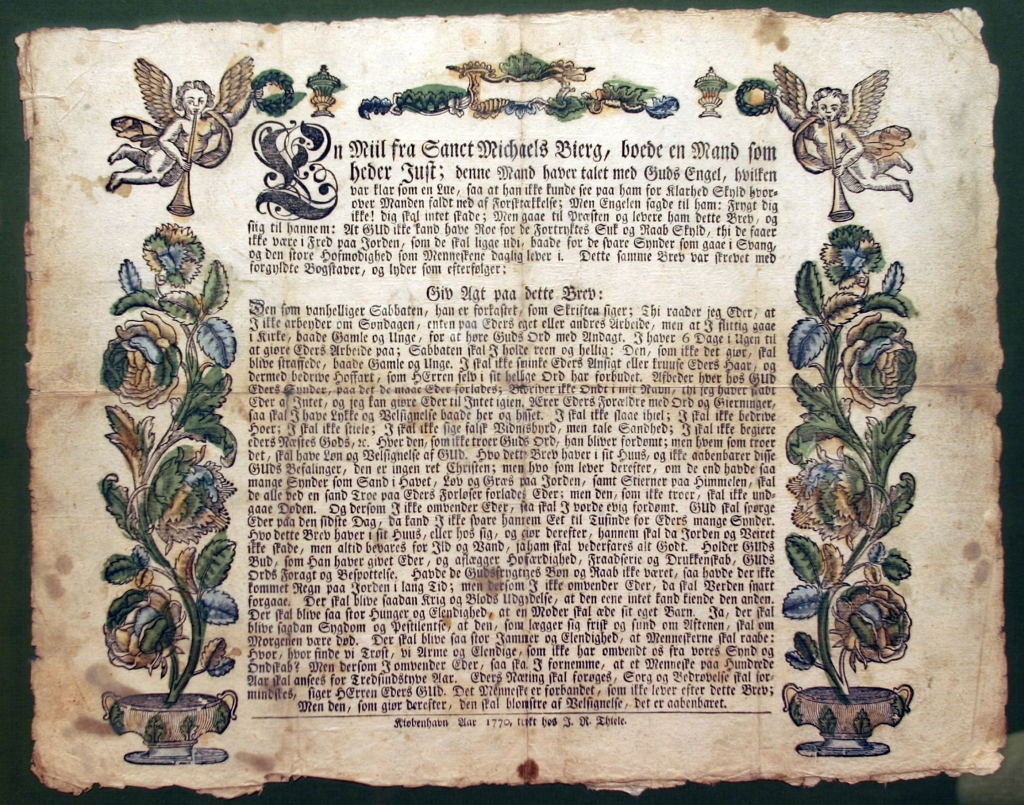 En Miil fra Sanct Michaels Bierg, boede en Mand som
heder Just; denne Mand haver talet med Guds Engel, hvilken
var klar som en Lue, saa at han ikke kunde see paa ham for Klarhed Skyld hvor-
over Manden faldt ned af Forskrækkelse; Men Engelen sagde til ham: Frygt dig
ikke! dig skal intet skade; Men gaae til Præsten og levere ham dette Brev, og
siig til hannem: At GUD ikke kand have Roe for de Fortryktes Suk og Raab Skyld, thi de faaer
ikke være i Fred paa Jorden, som de skal ligge udi, baade for de svare Synder som gaae i Svang,
og den store Hofmodighed som Menneskene daglig lever i. Dette samme Brev var skrevet med
forgyldte Bogstaver, og lyder som efterfølger:
Giv Agt paa dette Brev:
Den som vanhelliger Sabbaten, han er forkastet, som Skriften siger; Thi raader jeg Eder, at
I ikke arbeyder om Søndagen, enten paa Eders eget eller andres Arbeide, men at I flittig gaae
i Kirke, baade Gamle og Unge, for at høre Guds Ord med Andagt. I haver 6 Dage i Ugen til
at giøre Eders Arbeide paa; Sabbaten skal I holde reen og hellig: Den, som ikke det giør, skal
blive straffede, baade Gamle og Unge. I skal ikke sminke Eders Ansigt eller kruuse Eders Haar, og
dermed bedrive Hoffart, som HErren selv i sit hellige Ord har forbudet. Afbeder hver hos GUD
Eders Synder, paa det de maae Eder forlades; Bedriver ikke Ondt i mit Navn, thi jeg haver skabt
Eder af Intet, og jeg kan giøre Eder til Intet igien. Ærer Eders Forældre med Ord og Gierninger,
saa skal I have Lykke og Velsignelse baade her og hisset. I skal ikke slaae ihiel; I skal ikke bedrive
Hoer; I skal ikke stiele; I skal ikke sige falsk Vidnisbyrd, men tale Sandhed; I skal ikke begiere
eders Næstes Gods, &c. Hver den, som ikke troer Guds Ord, han bliver fordømt; men hvem som troer
det, skal have Løn og Velsignelse af GUD. Hvo dette Brev haver i sit Huus, og ikke aabenbarer disse
GUDs Befalinger, den er ingen ret Christen; men hvo som lever derefter, om de end havde saa
mange Synder som Sand i Havet, Løv og Græs paa Jorden, samt Stierner paa Himmelen, skal
de alle ved en sand Troe paa Eders Forløser forlades Eder; men den, som ikke troer, skal ikke und-
gaae Døden. Og dersom I ikke omvender Eder, saa skal I vorde evig fordømt. GUD skal spørge
Eder paa den sidste Dag, da kand I ikke svare hannem Eet til Tusinde for Eders mange Synder.
Hvo dette Brev haver i sit Huus, eller hos sig, og giør derefter, hannem skal da Jorden og Veiret
ikke skade, men altid bevares for Ild og Vand, ja ham skal vederfares alt Godt. Holder GUDs
Bud, som Han haver givet Eder, og aflægger Hofærdighed, Fraadserie og Drukkenskab, GUDs
Ords Foragt og Bespottelse. Havde de Gudsfrygtiges Bøn og Raab ikke været, saa havde der ikke
kommet Regn paa Jorden i lang Tid; men dersom I ikke omvender Eder, da skal Verden snart
forgaae. Der skal blive saadan Krig og Blods Udgydelse, at den eene intet kand kiende den anden.
Der skal blive saa stor Hunger og Elendighed, at en Moder skal æde sit eget Barn. Ja, der skal
blive saadan Sygdom og Pestilentse, at den, som lægger sig frisk og sund om Aftenen, skal om
Morgenen være død. Der skal blive saa stor Jammer og Elendighed, at Menneskerne skal raabe:
Hvor, hvor finde vi Trøst, vi Arme og Elendige, som ikke har omvendt os fra vores Synd og
Ondskab? Men dersom I omvender Eder, saa skal I fornemme, at et Menneske paa Hundrede
Aar skal ansees for Tredsindstyve Aar. Eders Næring skal forøges, Sorg og Bedrøvelse skal for-
mindskes, siger HErren Eders GUD. Det Menneske er forbandet, som ikke lever efter dette Brev;
Men den, som giør derefter, den skal blomstre af Velsignelse, det er aabenbaret.
Kiøbenhavn Aar 1770, trykt hos J. R. Thiele.